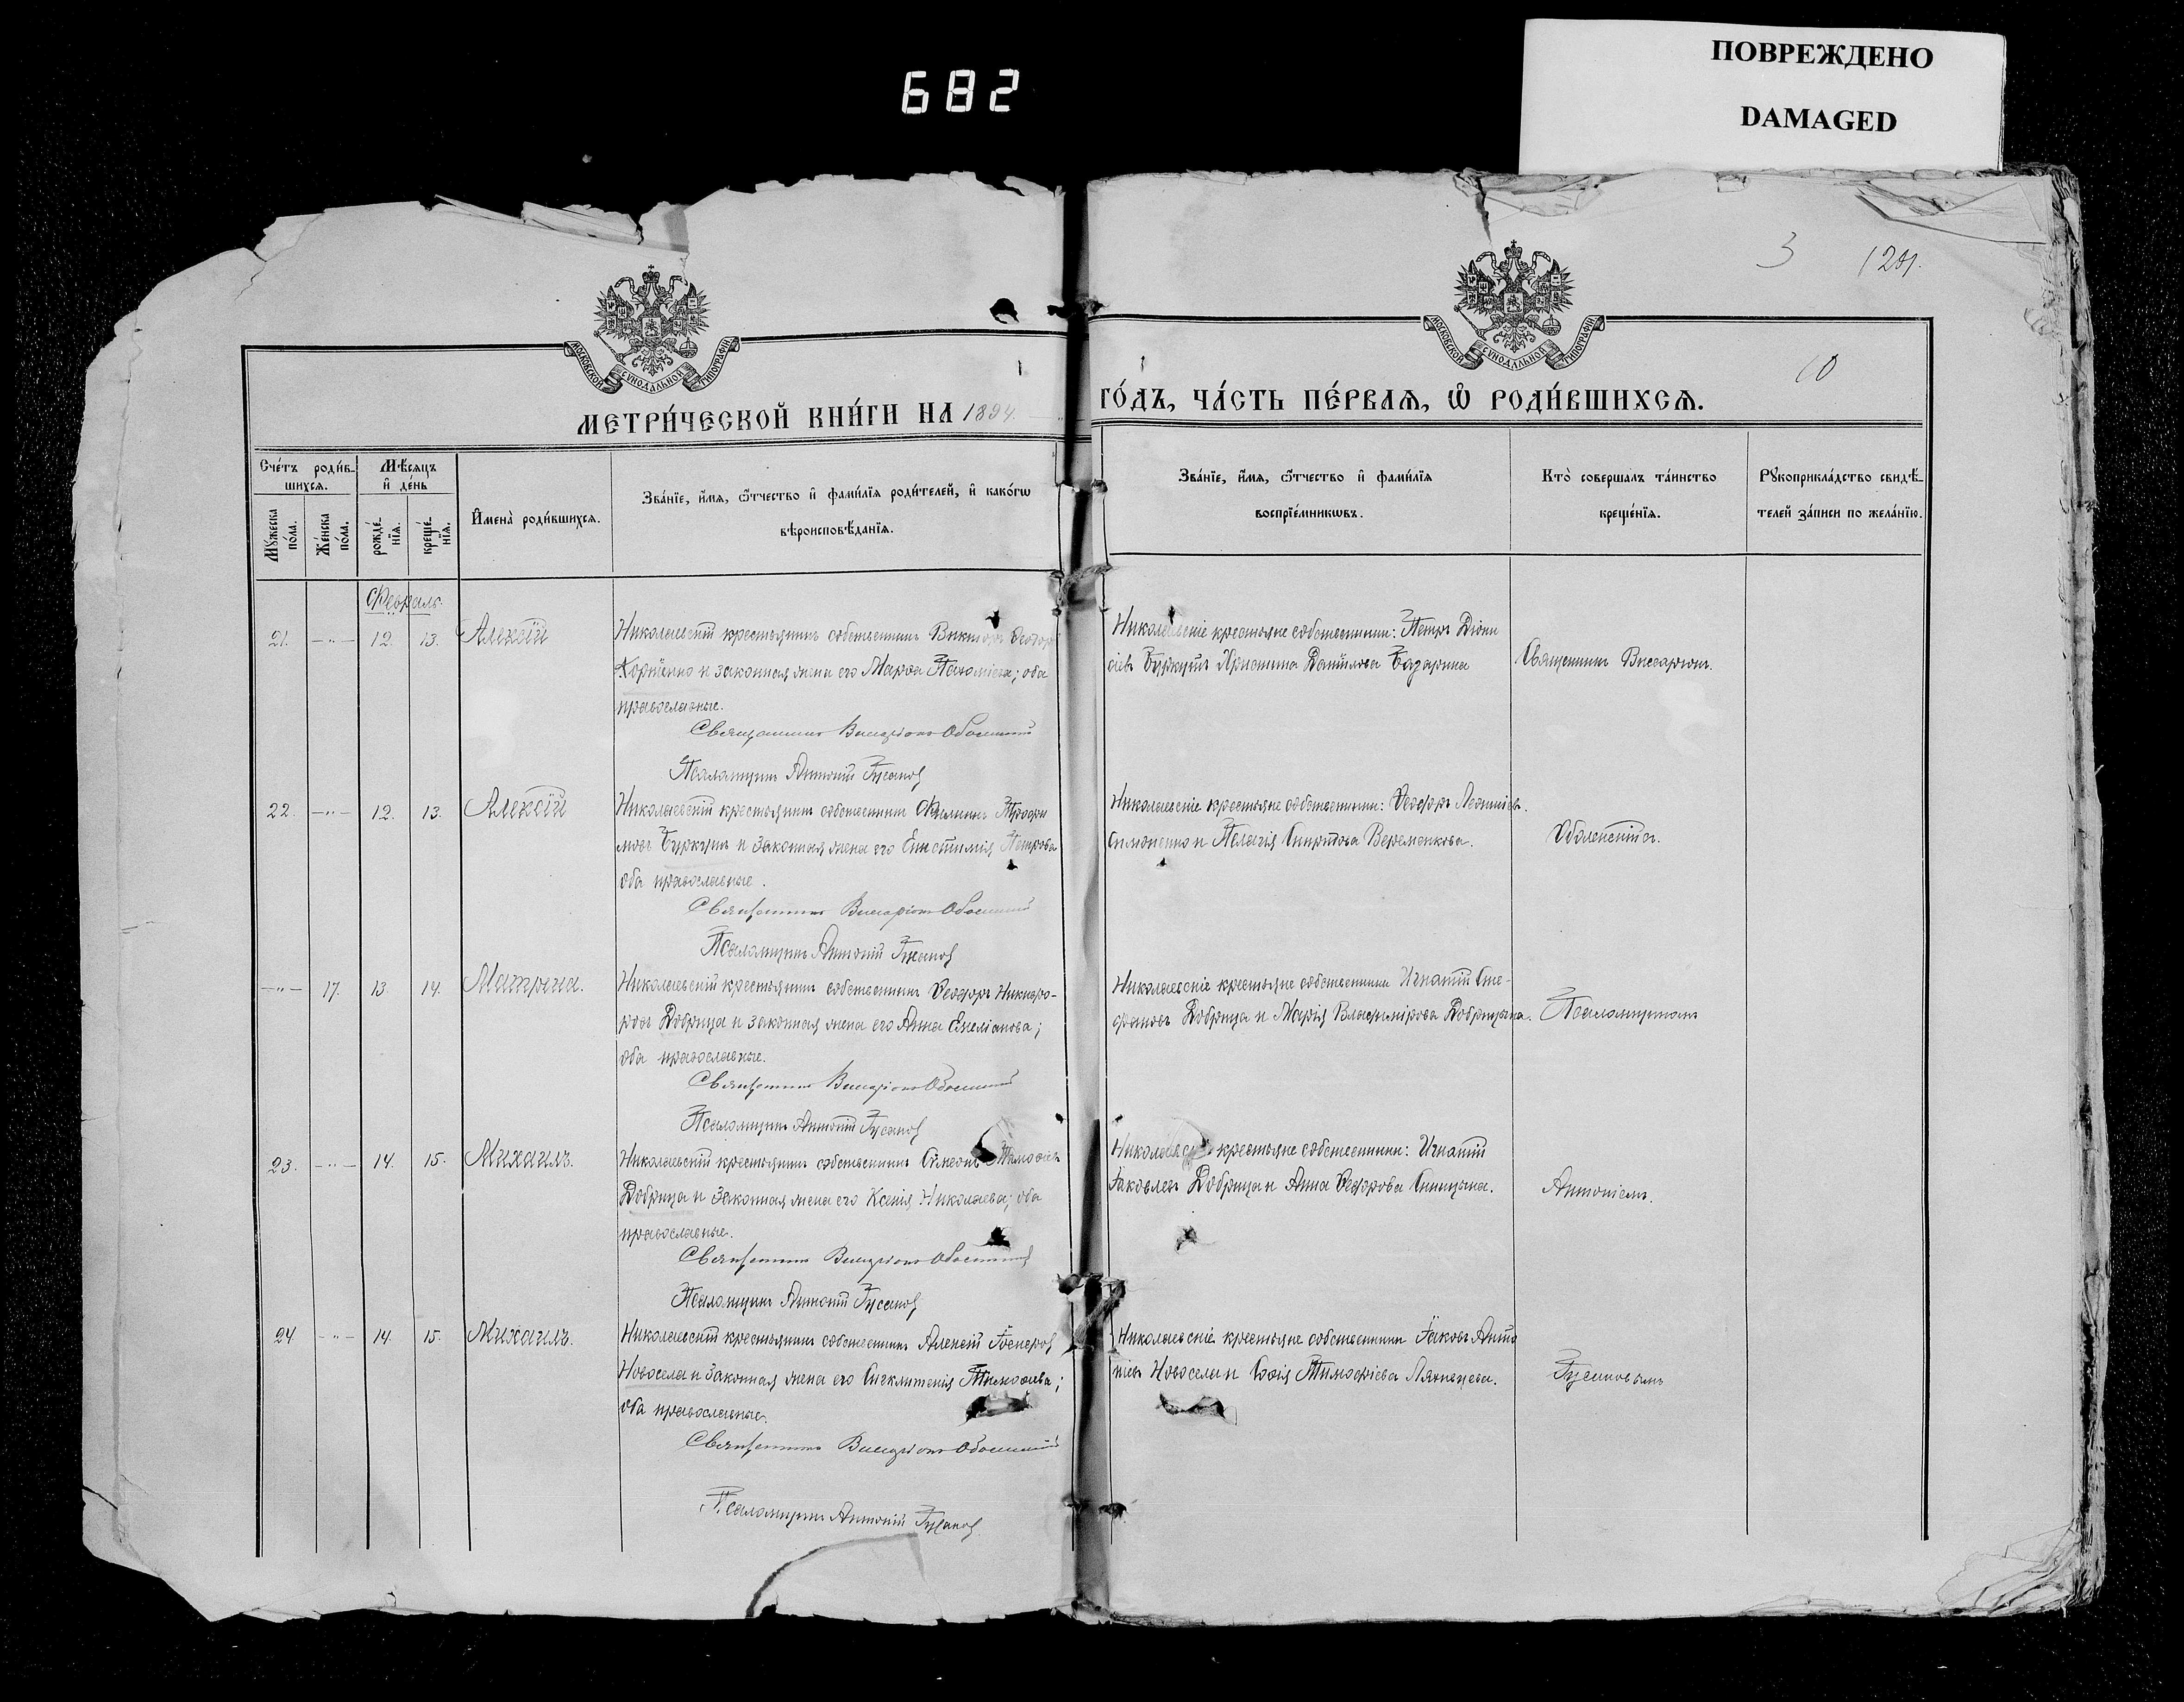 ПОВРЕЖДЕНО
DAMAGED
682
3 1291.
10
МОСКОВСКОЙ СѴНОДАЛЬНОЙ ТИПОГРАФІИ
МОСКОВСКОЙ СѴНОДАЛЬНОЙ ТИПОГРАФІИ
МЕТРИ́ЧЕСКОЙ КНИ́ГИ НА 1894. ГО́ДЪ, ЧА́СТЬ ПЕ́РВАѦ, Ѡ҆ РОДИ́ВШИХСѦ.
Сче́тъ роди́в-
шихсѧ.
Мѣ́сѧцъ
и҆ де́нь
Мꙋ́жеска
по́ла.
Же́нска
по́ла.
рожде́-
нїѧ.
креще́-
нїѧ.
И҆мена̀ роди́вшихсѧ.
Зва́нїе, и҆́мѧ, ѻ҆́тчество и҆ фами́лїѧ роди́телей, и҆ како́гѡ
вѣроисповѣ́данїѧ.
Зва́нїе, и҆́мѧ, ѻ҆́тчество и҆ фами́лїѧ
воспрїе́мникѡвъ.
Кто̀ совершалъ та́инство
креще́нїѧ.
Рꙋкоприкла́дство свидѣ́-
телей за́писи по жела́нїю.
Февраль.
21. —"— 12. 13. Алексій
Николаевскій крестьянинъ собственникъ Викторъ Ѳеодор
Корніенко и законная жена его Марѳа Пахоміева; оба
православные.
Священникъ Виссаріонъ Оболенскій
Псаломщикъ Антоній Гусаковъ
Николаевскіе крестьяне собственники: Петръ Діони
сіевъ Буркутъ Христина Даніилова Базарина
Священникъ Виссаріонъ.
22. —"— 12. 13. Алексій
Николаевскій крестьянинъ собственникъ Филиппъ Трофи
мовъ Буркутъ и законная жена его Евѳимія Петрова
оба православные.
Священникъ Виссаріонъ Оболенскій
Псаломщикъ Антоній Гусаковъ
Николаевскіе крестьяне собственники: Ѳеодоръ Леонтіевъ.
Симоненко и Пелагія Спиридова Веременкова.
Оболенскій съ.
—"— 17. 13. 14. Матрена.
Николаевскій крестьянинъ собственникъ Ѳеодоръ Никифо-
ровъ Добрица и законная жена его Анна Емеліанова;
оба православные.
Священникъ Виссаріонъ Оболенскій
Псаломщикъ Антоній Гусаковъ
Николаевскіе крестьяне собственники Игнатій Сте-
фановъ Добрица и Марія Владимірова Добрицына.
Псаломщикомъ
23. —"— 14. 15. Михаилъ.
Николаевскій крестьянинъ собственникъ Симеонъ Тимоѳеевъ
Добрица и законная жена его Ксенія Николаева; оба
православные.
Священникъ Виссаріонъ Оболенскій
Псаломщикъ Антоній Гусаковъ
Николаевскіе крестьяне собственники: Игнатій
Іаковлевъ Добрица и Анна Ѳеодорова Синицына.
Антоніемъ.
24 —"— 14. 15. Михаилъ.
Николаевскій крестьянинъ собственникъ Алексій
Новосела и законная жена его Сигклитикія Тимоѳеева;
оба православные.
Священникъ Виссаріонъ Оболенскій
Псаломщикъ Антоній Гусаковъ
Николаевскіе крестьяне собственники Іаковъ Анто
ніевъ Новосела и Софія Тимоѳеева
Гусаковымъ